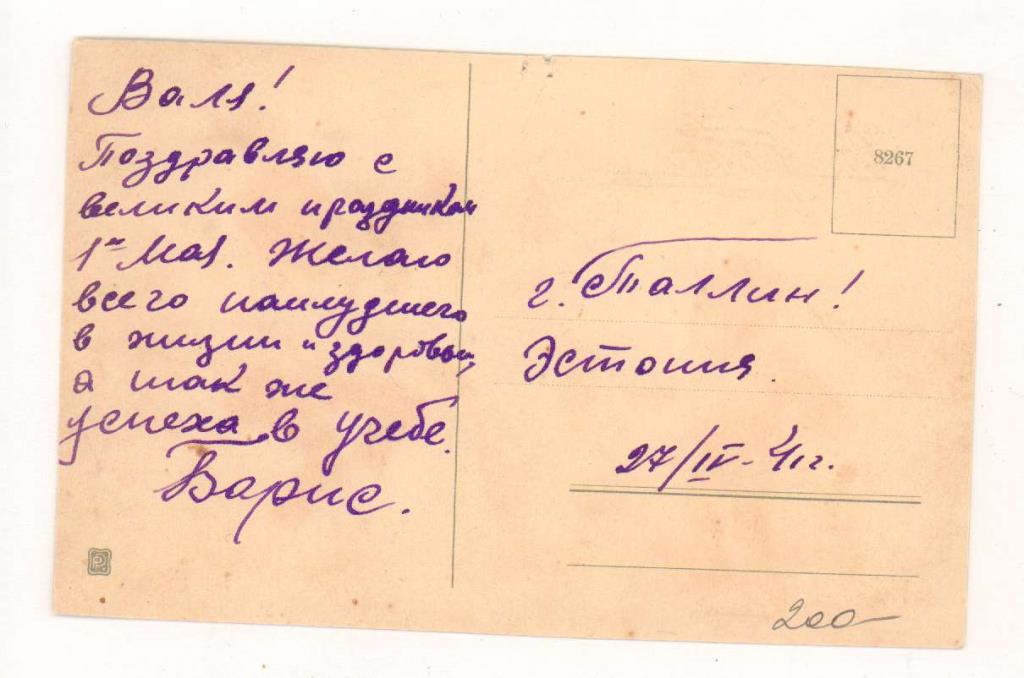 Валя!
Поздравляю с
великим праздником
1ᵐ Мая. Желаю
всего наилудшего
в жизни и здоровьи,
а так же
успеха в учебе.
Барис.
8267
г. Таллин!
Эстония.
27/IV-41г.
200-